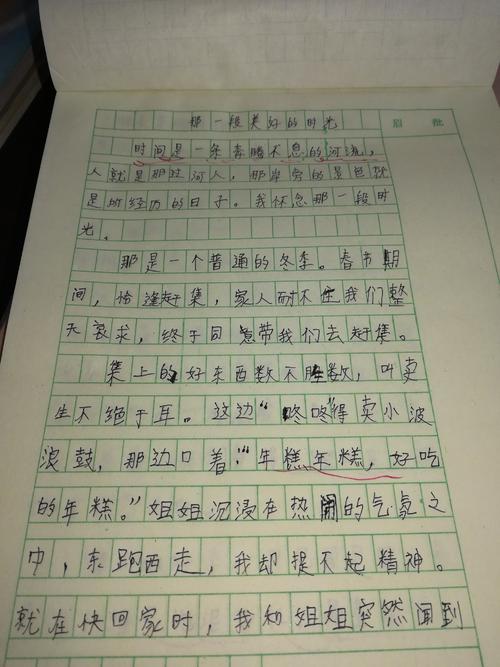 那一段美好的时光
眉批
时间是一条奔腾不息的河流，
人就是那过河人，那岸旁的景色就
是所经历的日子。我怀念那一段时
光。
那是一个普通的冬季。春节期
间，恰逢赶集，家人耐不住我们整
天哀求，终于同意带我们去赶集。
集上的好东西数不胜数，叫卖
生不绝于耳。这边“咚咚”得卖小波
浪鼓，那边口着：“年糕年糕，好吃
的年糕。”姐姐沉浸在热闹的气氛之
中，东跑西走，我却提不起精神。
就在快回家时，我和姐姐突然闻到